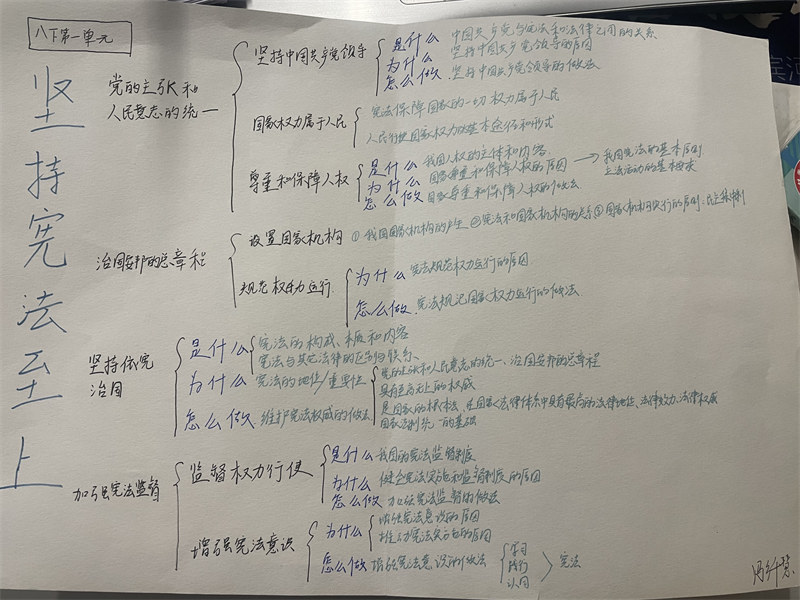 八下第一单元
坚持宪法至上
党的主张和
人民意志的统一
坚持中国共产党领导
是什么 中国共产党与宪法和法律之间的关系
为什么 坚持中国共产党领导的原因
怎么做 坚持中国共产党领导的做法
国家权力属于人民
宪法保障国家的一切权力属于人民
人民行使国家权力的基本途径和形式
尊重和保障人权
是什么 我国人权的主体和内容
为什么 国家尊重和保障人权的原因 → 我国宪法的基本原则
立法活动的基本要求
怎么做 国家尊重和保障人权的做法
治国安邦的总章程
设置国家机构 ①我国国家机构的产生 ②宪法和国家机构的关系 ③国家机构实行的原则:民主集中制
规范权力运行
为什么 宪法规范权力运行的原因
怎么做 宪法规范国家权力运行的做法
坚持依宪
治国
是什么 宪法的构成、本质和内容
宪法与其他法律的区别与联系
为什么 宪法的地位/重要性
党的主张和人民意志的统一、治国安邦的总章程
具有至高无上的权威
是国家的根本法,在国家法律体系中具有最高的法律地位、法律效力、法律权威
国家法制统一的基础
怎么做 维护宪法权威的做法
加强宪法监督
监督权力行使
是什么 我国的宪法监督制度
为什么 健全宪法实施和监督制度的原因
怎么做 加强宪法监督的做法
增强宪法意识
为什么 增强宪法意识的原因
推动宪法实施的原因
怎么做 增强宪法意识的做法
学习
践行
认同
宪法